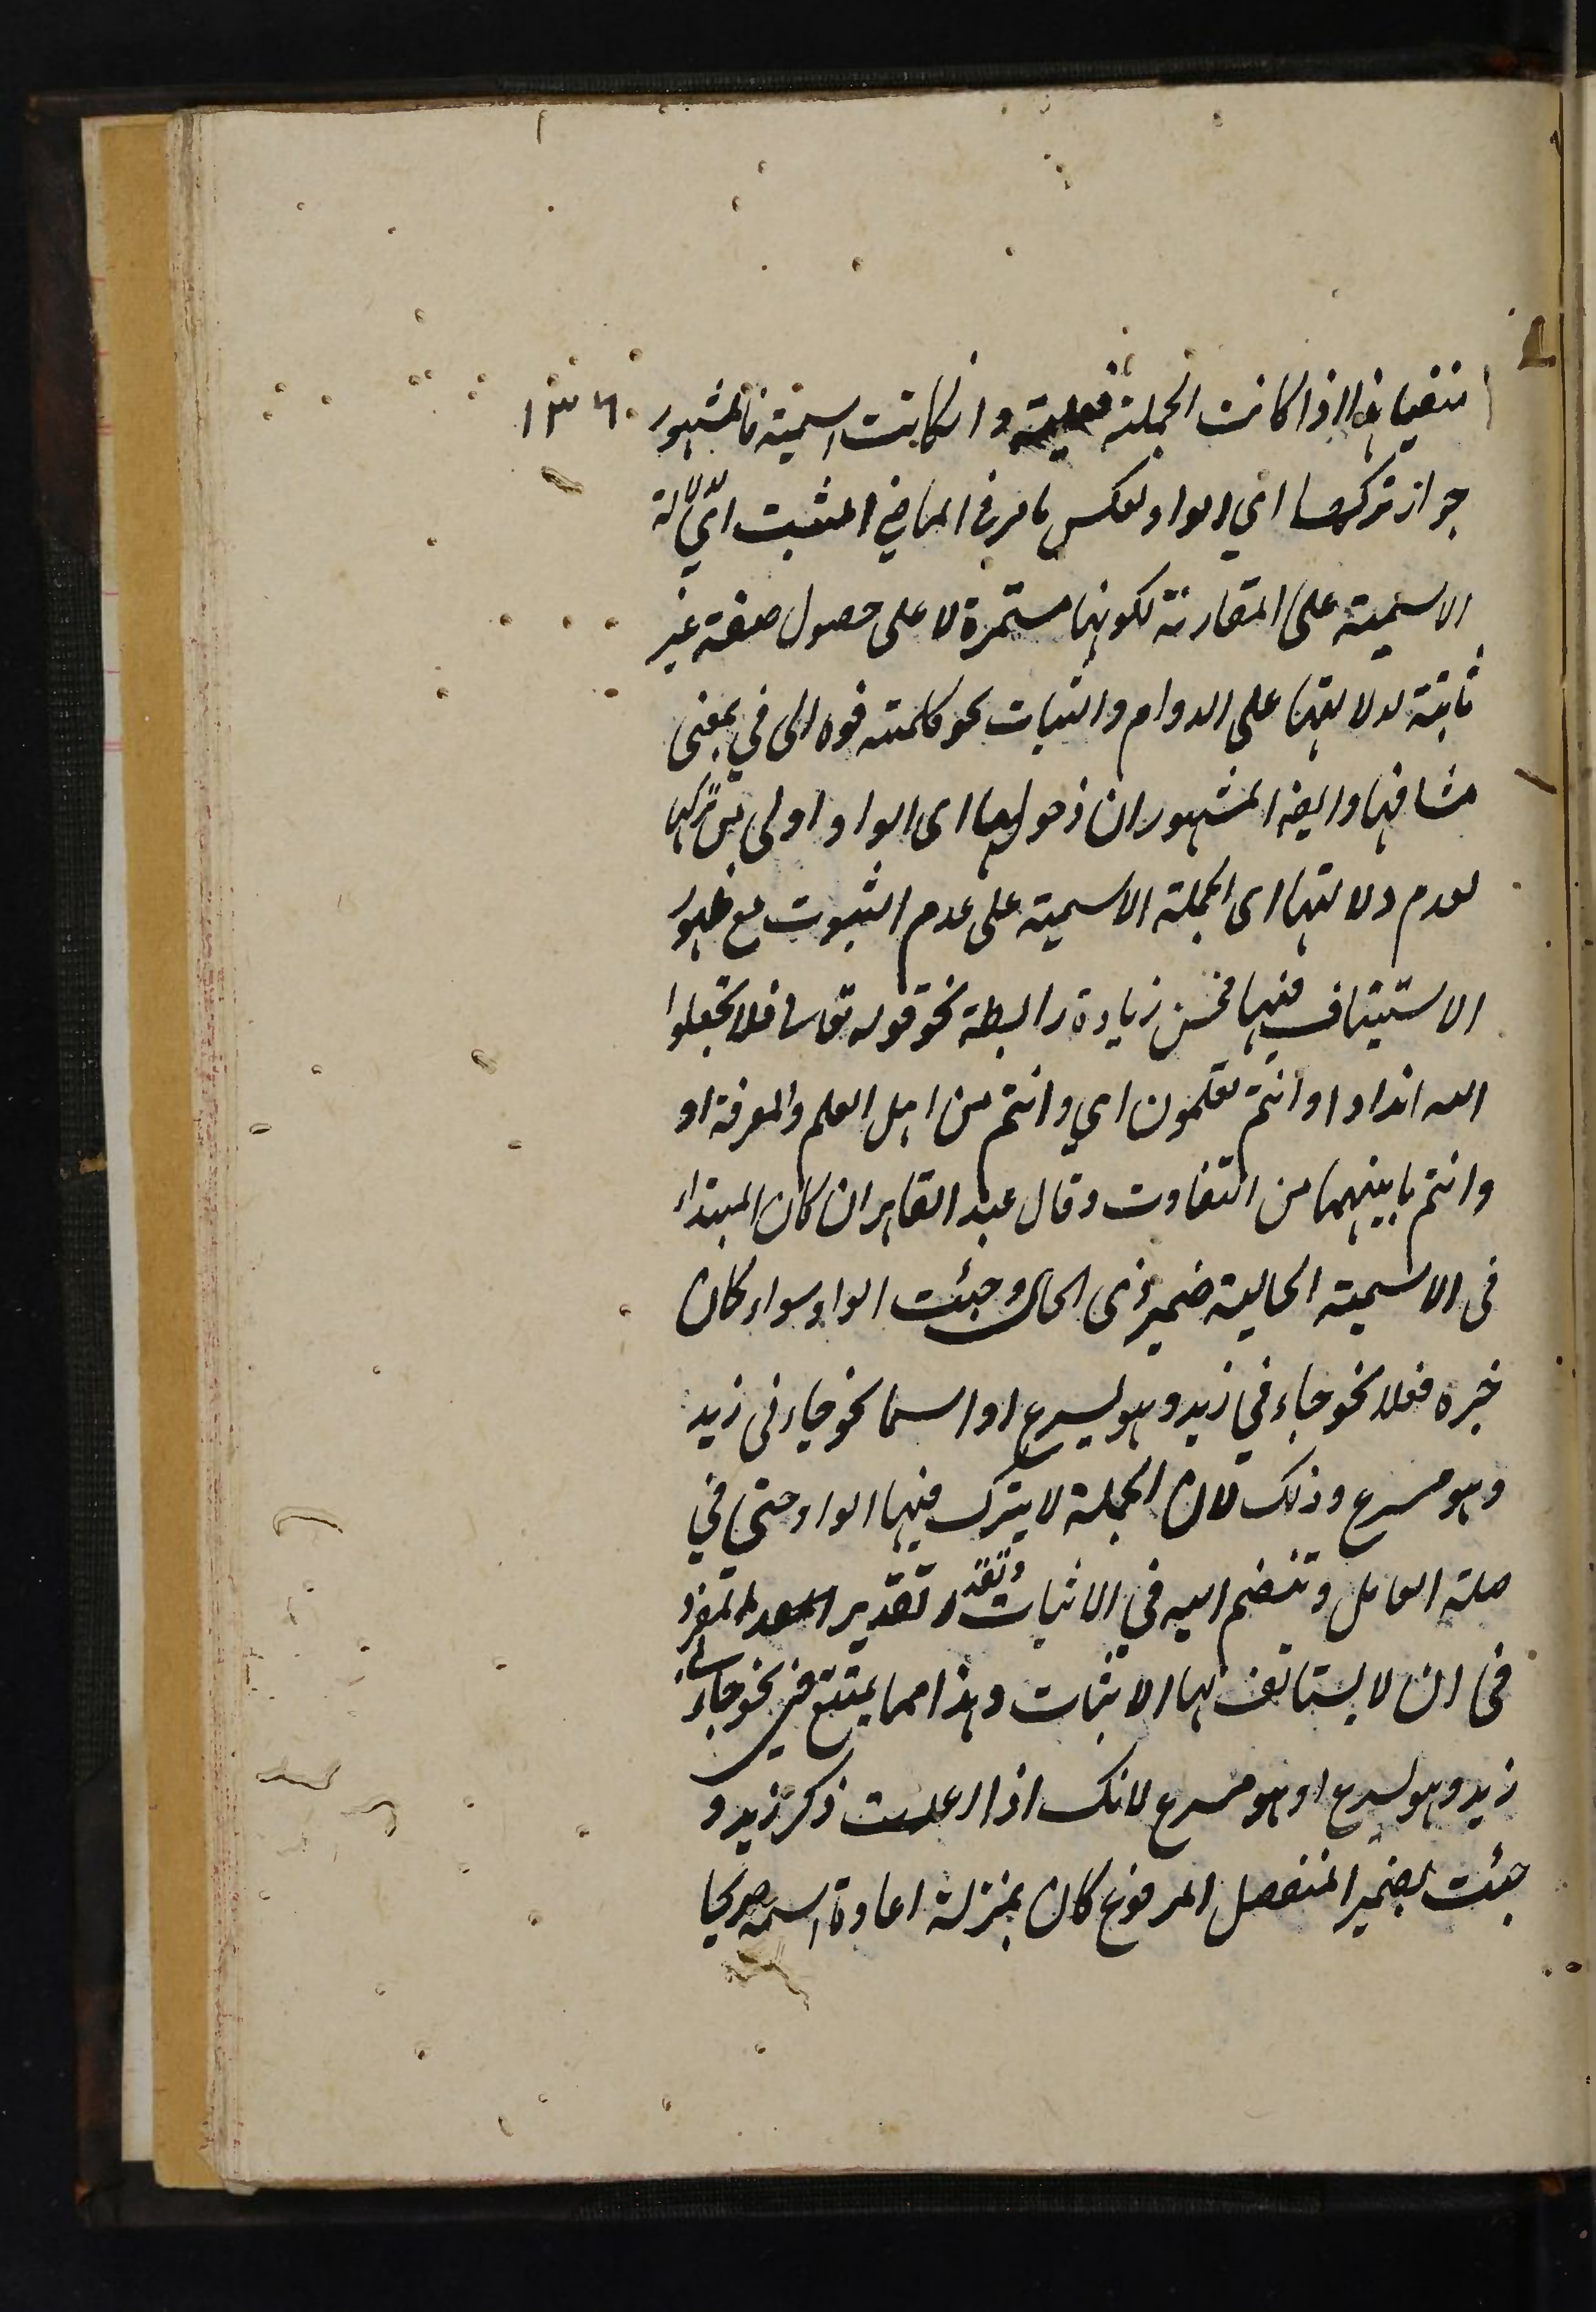 منفيا هذا اذا كانت الجملة فعلية وانكانت اسمية فالمشهور ١٣٦
جواز تركها اي الواو لعكس ما مر في الماضي المثبت اي لدلالة
الاسمية على المقارنة لكونها مستمرة لا على حصول صفة غير
ثابتة لدلالتها على الدوام والثبات نحو كلمته فوه الى في بمعنى
مشافها وايضا المشهور ان دخولها اى الواو اولى من تركها
لعدم دلالتها اى الجملة الاسمية على عدم الثبوت مع ظهور
الاستيناف فيها فحسن زيادة رابطة نحو قوله تعالى فلا تجعلوا
لله اندادا وانتم تعلمون اي وانتم من اهل العلم والمعرفة او
وانتم ما بينهما من التفاوت وقال عبد القاهر ان كان المبتداء
فى الاسمية الحالية ضمير ذى الحال وجبت الواو سواء كان
خبره فعلا نحو جاءني زيد وهو يسرع او اسما نحو جاءنى زيد
وهو مسرع وذلك لان الجملة لا يترك فيها الواو حتى في
صلة العامل وتنضم اليه في الاثبات وتقدر تقدير المفرد
فى ان لا يستانف لها الاثبات وهذا مما يمتنع في نحو جاءنى
زيد وهو يسرع او وهو مسرع لانك اذا اعدت ذكر زيد و
جئت بضمير المنفصل المرفوع كان بمنزلة اعادة اسمه صريحا